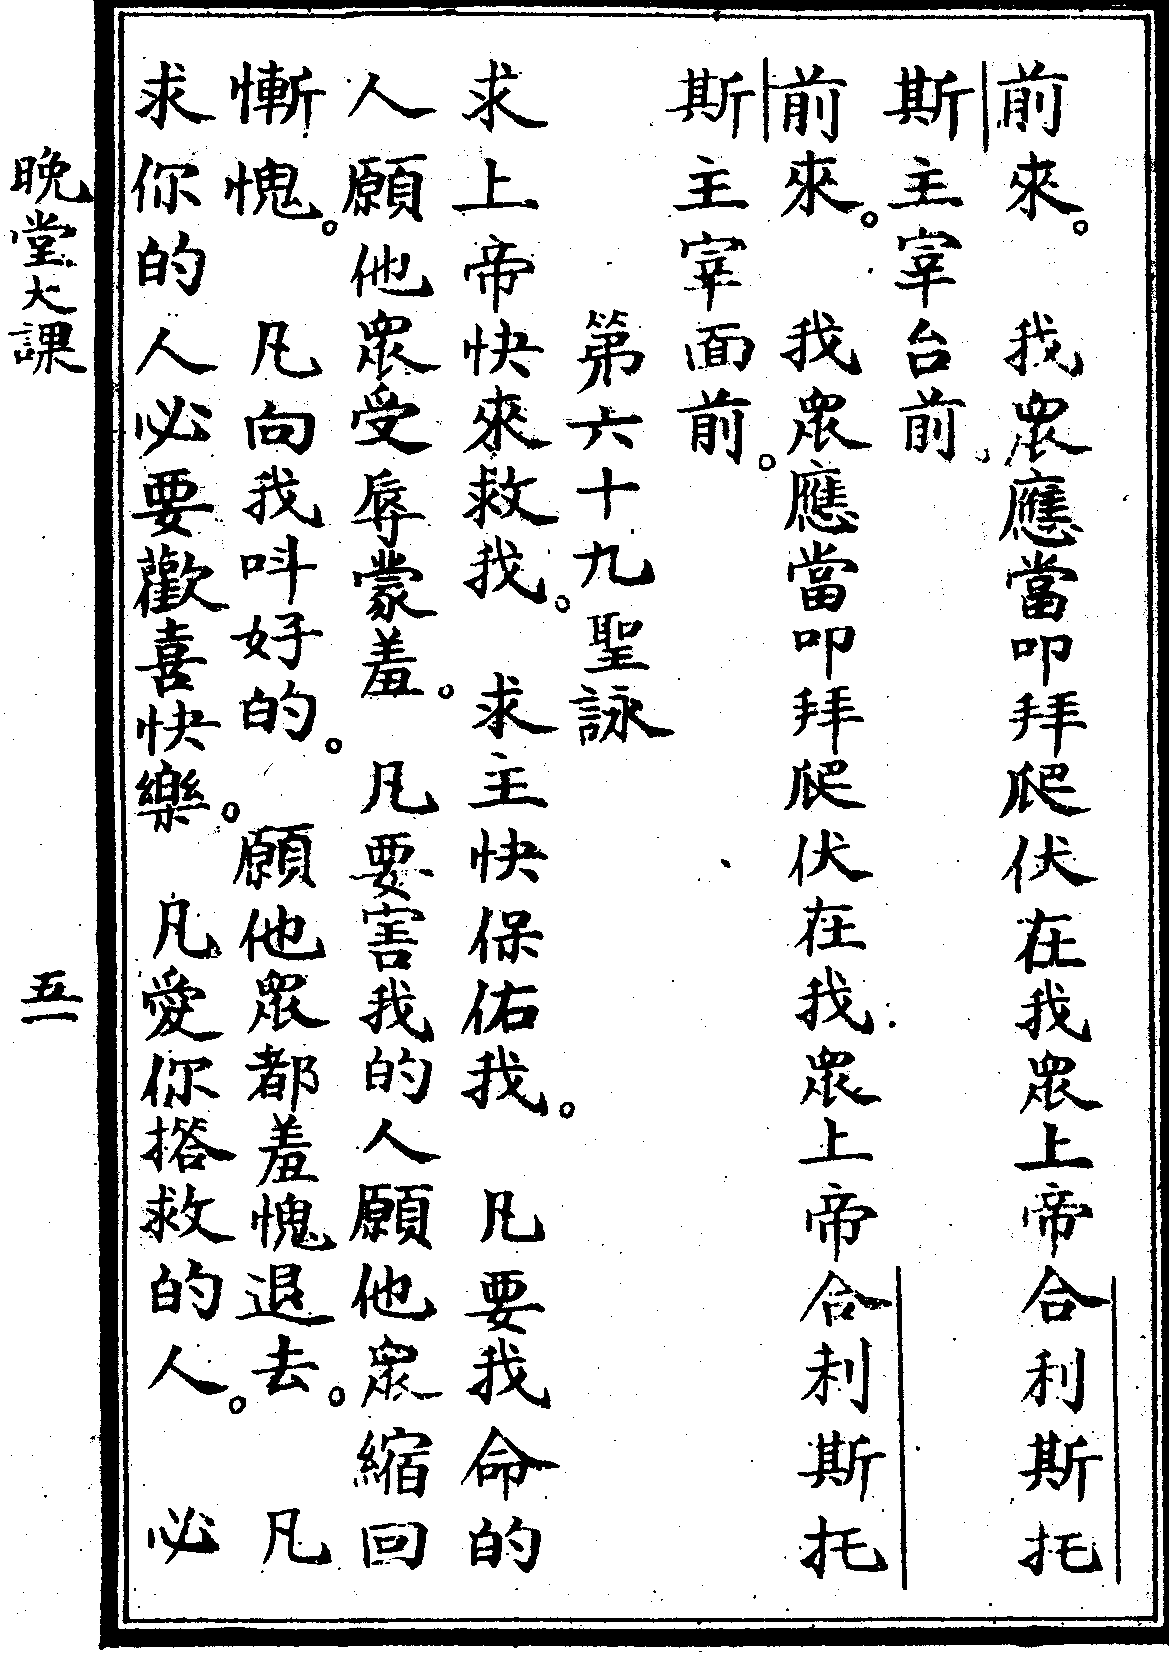 前來。　我眾應當叩拜爬伏在我眾上帝合利斯托
斯主宰台前。
前來。　我眾應當叩拜爬伏在我眾上帝合利斯托
斯主宰面前。
第六十九聖詠
求上帝快來救我。　求主快保佑我。　凡要我命的
人願他眾受辱蒙羞。　凡要害我的人願他眾縮回
慚愧。　凡向我呌好的。　願他眾都羞愧退去。　凡
求你的人必要歡喜快樂。　凡愛你搭救的人。　必
晚堂大課
五一